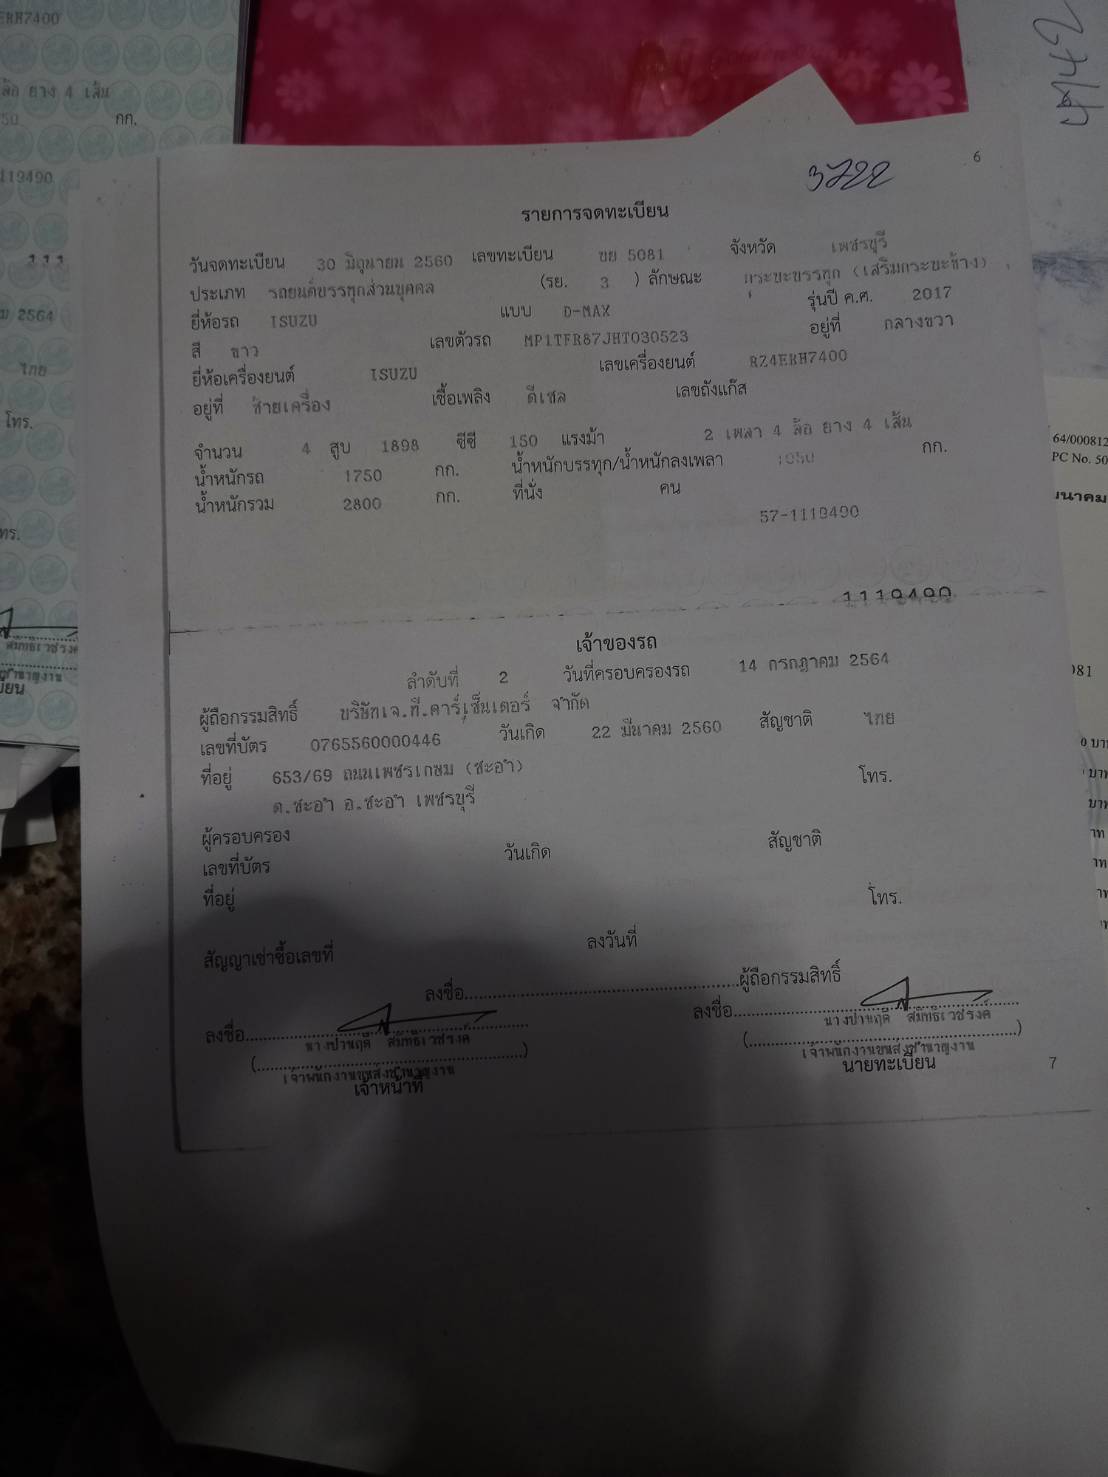 3722
6
รายการจดทะเบียน
วันจดทะเบียน 30 มิถุนายน 2560 เลขทะเบียน 5081 จังหวัด เพชรบุรี
ประเภท รถยนต์บรรทุกส่วนบุคคล (รย. 3 ) ลักษณะ กระบะบรรทุก (เสริมกระบะข้าง)
ยี่ห้อรถ ISUZU แบบ D-MAX รุ่นปี ค.ศ. 2017
สี ขาว เลขตัวรถ MP1TFR87JHT030523 อยู่ที่ กลางขวา
ยี่ห้อเครื่องยนต์ ISUZU เลขเครื่องยนต์ RZ4ERH7400
อยู่ที่ ซ้ายเครื่อง เชื้อเพลิง ดีเซล เลขถังแก๊ส
จำนวน 4 สูบ 1898 ซีซี 150 แรงม้า 2 เพลา 4 ล้อ ยาง 4 เส้น
น้ำหนักรถ 1750 กก. น้ำหนักบรรทุก/น้ำหนักลงเพลา 1050 กก.
น้ำหนักรวม 2800 กก. ที่นั่ง คน
57-1119490
1119490
เจ้าของรถ
ลำดับที่ 2 วันที่ครอบครองรถ 14 กรกฎาคม 2564
ผู้ถือกรรมสิทธิ์ บริษัทเจ.ที.คาร์เซ็นเตอร์ จำกัด
เลขที่บัตร 0765560000446 วันเกิด 22 มีนาคม 2560 สัญชาติ ไทย
ที่อยู่ 653/69 ถนนเพชรเกษม (ชะอำ) โทร.
ต.ชะอำ อ.ชะอำ เพชรบุรี
ผู้ครอบครอง
เลขที่บัตร วันเกิด สัญชาติ
ที่อยู่ โทร.
สัญญาเช่าซื้อเลขที่ ลงวันที่
ลงชื่อ ผู้ถือกรรมสิทธิ์
ลงชื่อ ลงชื่อ
เจ้าพนักงานขนส่งชำนาญงาน เจ้าพนักงานขนส่งชำนาญงาน
เจ้าหน้าที่ นายทะเบียน
7
ERH7400
ล้อ ยาง 4 เส้น
กก.
119490
111
2564
ไทย
โทร.
64/000812
PC No. 50